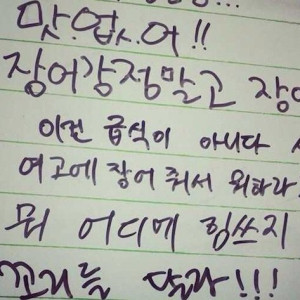 맛.없.어!!
장어강정말고 장어
이건 급식이 아니다
여고에 장어 줘서 뭐하라
뭐 어디에 힘쓰지
꼬리를 달라!!!